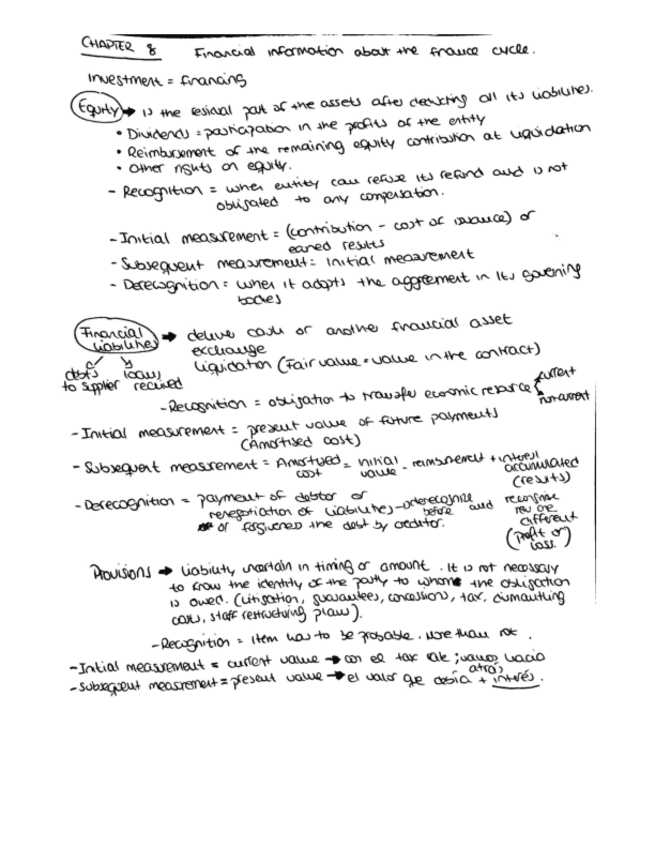 CHAPTER 8 Financial information about the finance cycle.
Investment = financing
Equity → is the residual part of the assets after deducting all its liabilities.
• Dividends = participation in the profits of the entity
• Reimbursement of the remaining equity contribution at liquidation
• Other rights on equity.
- Recognition = when entity can refuse its refund and is not
obligated to any compensation.
- Initial measurement = (contribution - cost of issuance) or
earned results
- Subsequent measurement = Initial measurement
- Derecognition = when it adopts the aggreement in its governing
bodies
Financial liabilities → deliver cash or another financial asset
exchange
liquidation (Fair value = value in the contract)
debts to supplier loans received
- Recognition = obligation to transfer economic resource current
non-current
- Initial measurement = present value of future payments
(Amortised cost)
- Subsequent measurement = Amortised cost = initial value - reimbursement + interest accumulated
(results)
- Derecognition = payment of debtor or
renegotiation of liabilities → derecognise before and recognise new one different
or forgiveness the debt by creditor.
(profit or loss)
Provisions → liability uncertain in timing or amount. It is not necessary
to know the identity of the party to whom the obligation
is owed. (Litigation, guarantees, concessions, tax, dismantling
costs, staff restructuring plans).
- Recognition = item has to be probable. More than not.
- Initial measurement = current value → con el tax rate; vamos hacia
atrás
- Subsequent measurement = present value → el valor que debía + interés.